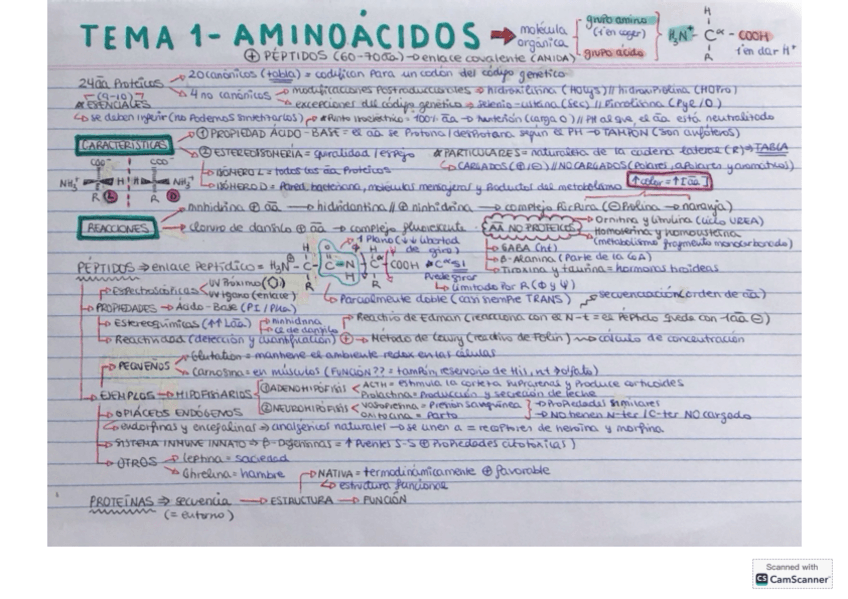 TEMA 1- AMINOÁCIDOS → molécula orgánica grupo amino (1 en coger) grupo ácido H₃N⁺ - Cα - COOH H R 1 en dar H⁺
⊕ PÉPTIDOS (60-70āa) → enlace covalente (AMIDA)
24 āa Proteicos → 20 canónicos (tabla) = codifican para un codón del código genético
→ 4 no canónicos → modificaciones postraduccionales → hidroxilisina (HOLys) // hidroxiprolina (HOPro)
(9-10) * ESENCIALES → excepciones del código genético → seleno-cisteína (Sec) // Pirrolisina (Pyl/O)
↳ se deben ingerir (no podemos sintetizarlos) * Punto isoeléctrico = 100% āa → zwitterión (carga 0) // PH al que el āa está neutralizado
CARACTERÍSTICAS → ① PROPIEDAD ÁCIDO-BASE = el āa se protona/desprotona según el PH → TAMPÓN (son anfóteros)
② ESTEREOISOMERÍA = quiralidad / espejo * PARTICULARES = naturaleza de la cadena lateral (R) → TABLA
↳ CARGADOS (⊕/⊖) // NO CARGADOS (Polares, apolares y aromáticos)
COO⁻ COO⁻ NH₃⁺ H H NH₃⁺ R L R D
ISÓMERO L = todos los āa Proteicos
ISÓMERO D = Pared bacteriana, moléculas mensajeras y productos del metabolismo
↑color = ↑[āa]
REACCIONES → ninhidrina ⊕ āa → hidrindantina // ⊕ ninhidrina → complejo Púrpura (⊖ Prolina → naranja)
→ cloruro de dansilo ⊕ āa → complejo fluorescente
āa NO PROTEICOS → Ornitina y citrulina (ciclo UREA)
→ Homoserina y homocisteína (metabolismo fragmento monocarbonado)
→ GABA (nt)
→ β-Alanina (Parte de la CoA)
→ Tiroxina y taurina = hormonas tiroideas
PÉPTIDOS ⇒ enlace Peptídico = H₃N⁺ - C - C - N - Cα - COOH
1 Plano (↓↓ libertad de giro)
* Cα SI Puede girar
↳ Limitado por R (Φ y Ψ)
↳ Parcialmente doble (casi siempre TRANS)
→ Espectroscópicas UV Próximo (O) UV lejano (enlace)
→ PROPIEDADES → Ácido-Base (PI / PKa)
→ secuenciación (orden de āa)
→ Estereoquímicas (↑↑ Lāa) → ninhidrina → cl de dansilo → Reactivo de Edman (reacciona con el N-t = el péptido queda con -1āa ⊖)
→ Reactividad (detección y cuantificación) ⊕ → Método de Lowry (reactivo de Folin) → cálculo de concentración
→ PEQUEÑOS → Glutation = mantiene el ambiente redox en las células
→ Carnosina = en músculos (FUNCIÓN?? = tampón, reservorio de His, nt → olfato)
→ EJEMPLOS → HIPOFISARIOS ① ADENOHIPÓFISIS → ACTH = estimula la corteza suprarrenal y produce corticoides
Prolactina = Producción y secreción de leche
② NEUROHIPÓFISIS → vasopresina = Presión sanguínea → Propiedades similares
oxitocina = Parto → NO tienen N-ter / C-ter NO cargado
→ OPIÁCEOS ENDÓGENOS
↳ endorfinas y encefalinas ⇒ analgésicos naturales → se unen a = receptores de heroína y morfina
→ SISTEMA INMUNE INNATO → β-Defensinas = ↑ Puentes S-S ⊕ Propiedades citotóxicas)
→ OTROS → Leptina = saciedad
→ Ghrelina = hambre
→ NATIVA = termodinámicamente ⊕ favorable
↳ estructura funcional
PROTEÍNAS ⇒ secuencia → ESTRUCTURA → FUNCIÓN
(= entorno)
Scanned with
CS CamScanner